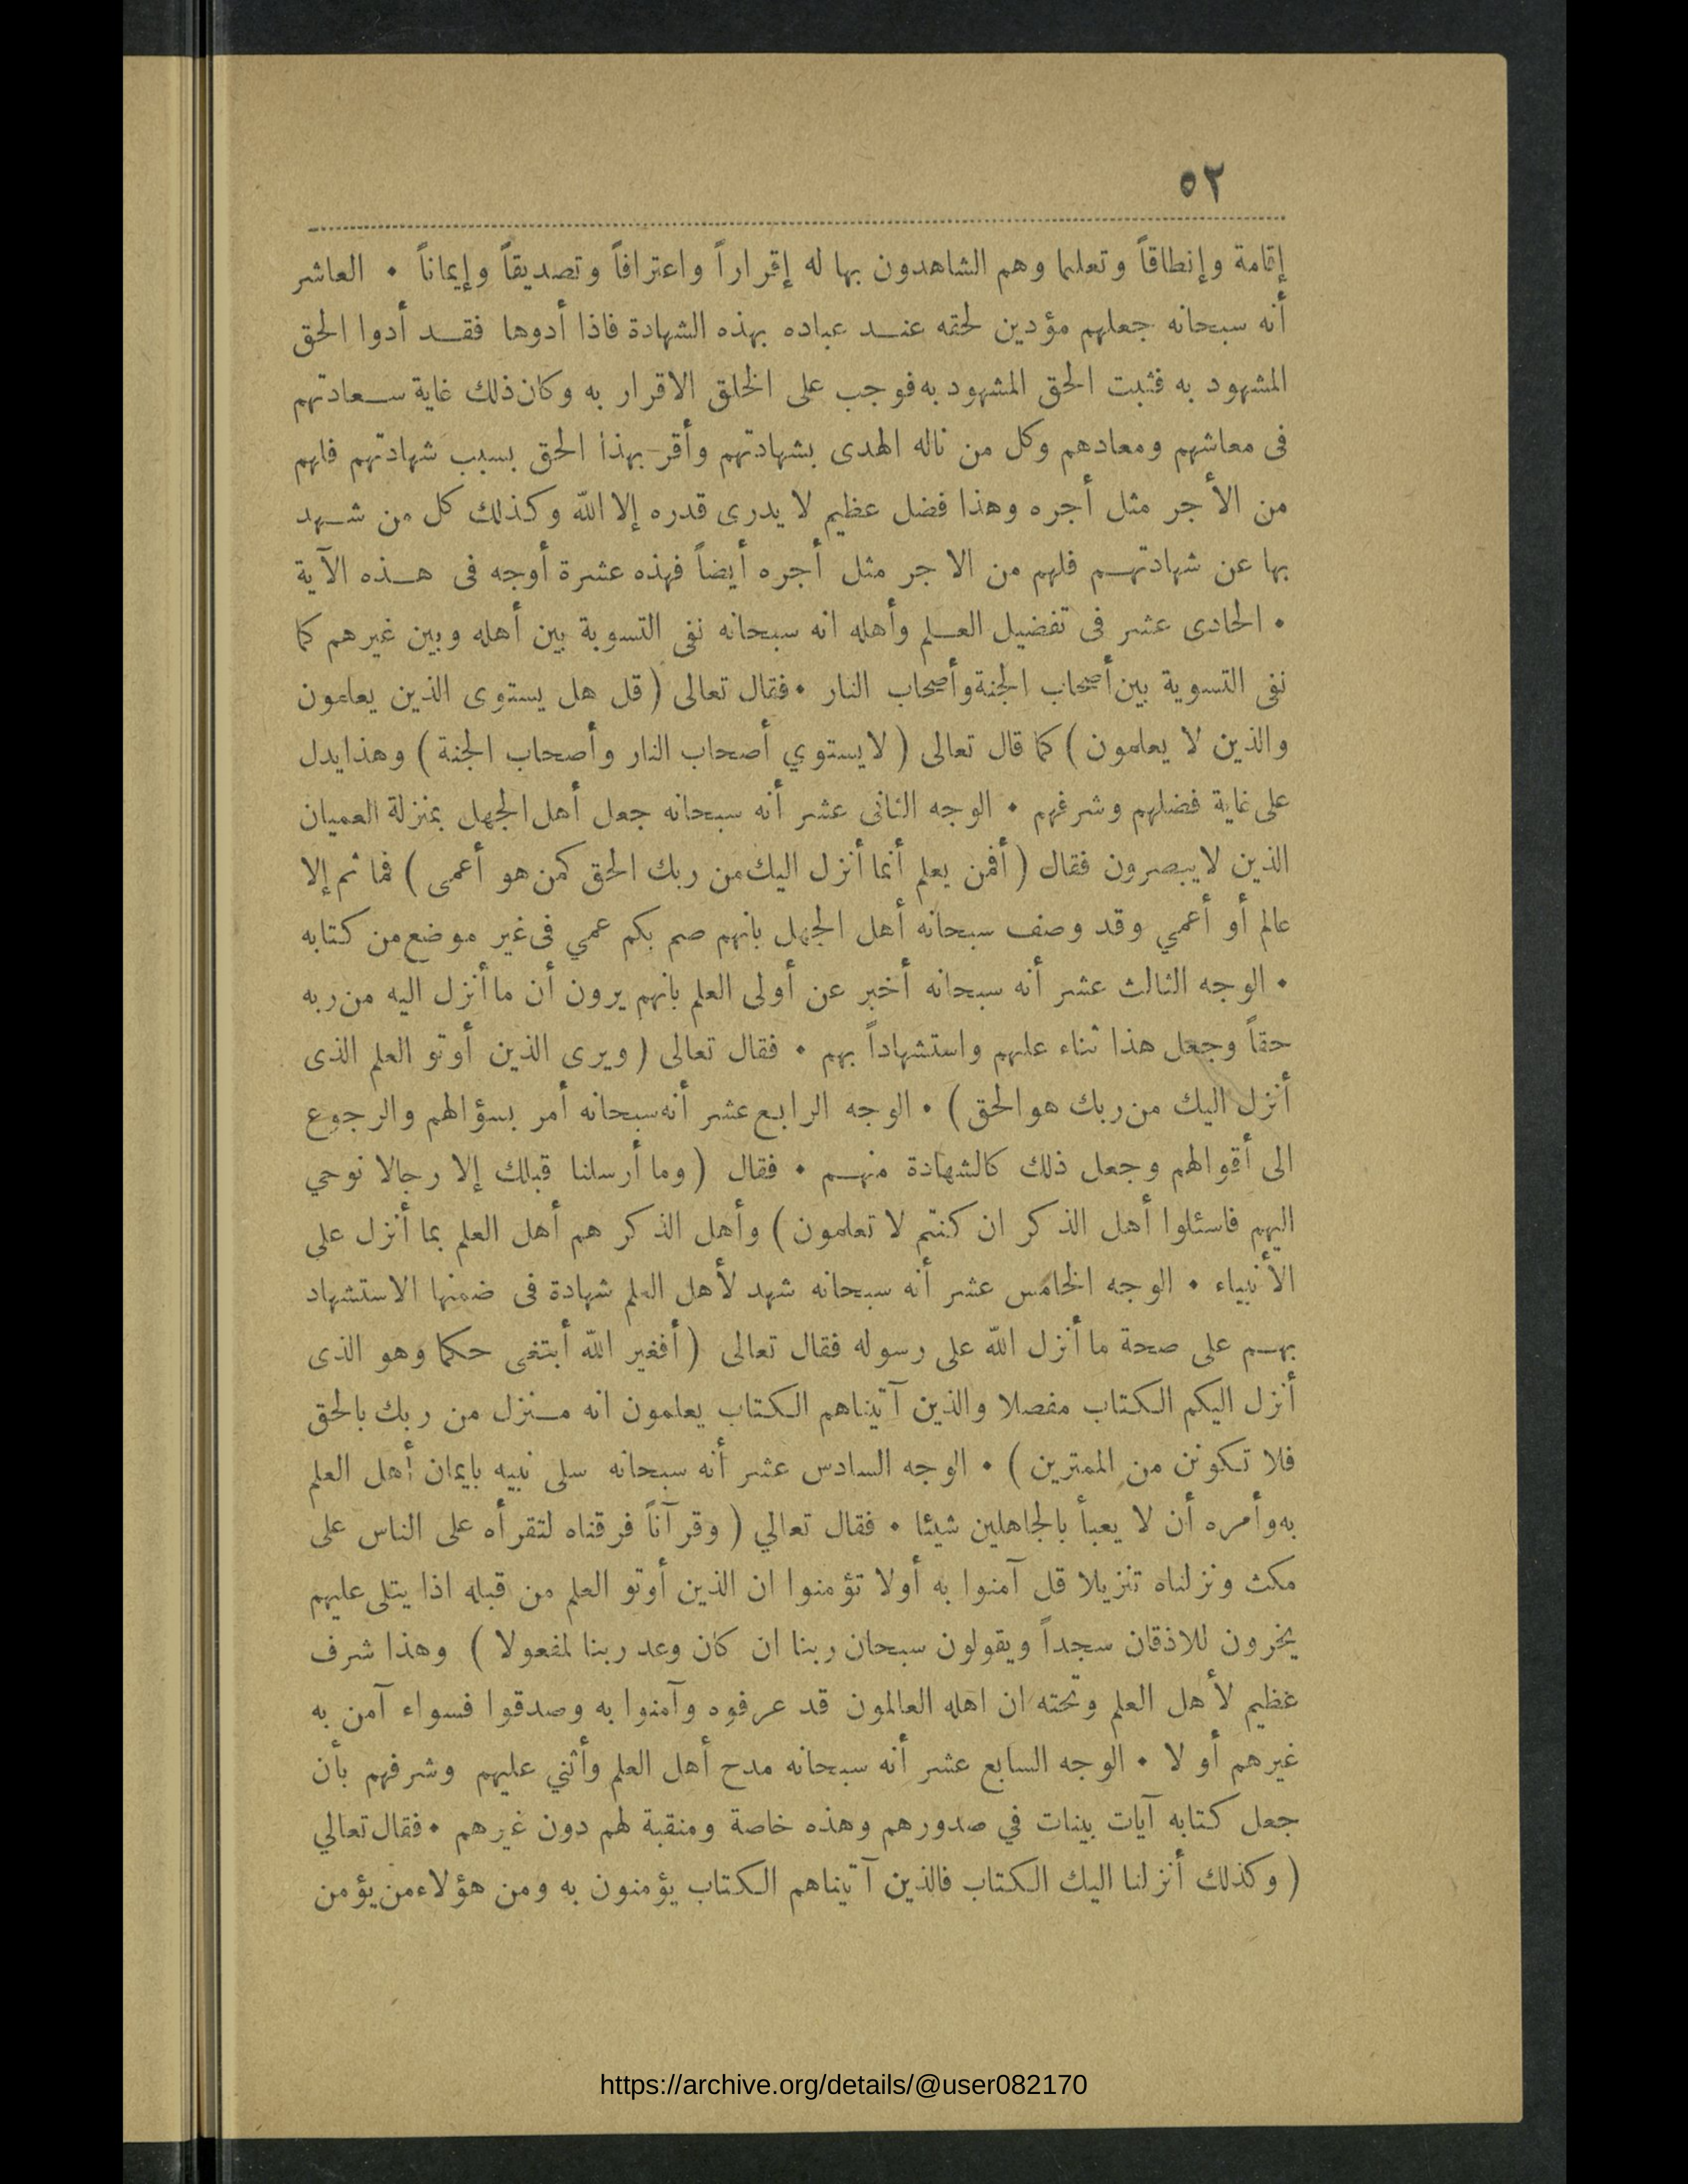 ٥٢
إقامة وإنطاقاً وتعليما وهم الشاهدون بها له إقراراً واعترافاً وتصديقاً وإيماناً • العاشر
أنه سبحانه جعلهم مؤدين لحقه عند عباده بهذه الشهادة فاذا أدوها فقد أدوا الحق
المشهود به فثبت الحق المشهود به فوجب على الخلق الاقرار به وكان ذلك غاية سعادتهم
فى معاشهم ومعادهم وكل من ناله الهدى بشهادتهم وأقر بهذا الحق بسبب شهادتهم فلهم
من الأجر مثل أجره وهذا فضل عظيم لا يدرى قدره إلا الله وكذلك كل من شهد
بها عن شهادتهم فلهم من الاجر مثل أجره أيضاً فهذه عشرة أوجه فى هذه الآية
• الحادى عشر فى تفضيل العلم وأهله انه سبحانه نفى التسوية بين أهله وبين غيرهم كما
نفى التسوية بين أصحاب الجنة وأصحاب النار • فقال تعالى ( قل هل يستوى الذين يعلمون
والذين لا يعلمون ) كما قال تعالى ( لا يستوي أصحاب النار وأصحاب الجنة ) وهذا يدل
على غاية فضلهم وشرفهم • الوجه الثانى عشر أنه سبحانه جعل أهل الجهل بمنزلة العميان
الذين لا يبصرون فقال ( أفمن يعلم أنما أنزل اليك من ربك الحق كمن هو أعمى ) فما ثم إلا
عالم أو أعمي وقد وصف سبحانه أهل الجهل بانهم صم بكم عمي فى غير موضع من كتابه
• الوجه الثالث عشر أنه سبحانه أخبر عن أولى العلم بانهم يرون أن ما أنزل اليه من ربه
حقاً وجعل هذا ثناء عليهم واستشهاداً بهم • فقال تعالى ( ويرى الذين أوتو العلم الذى
أنزل اليك من ربك هو الحق ) • الوجه الرابع عشر أنه سبحانه أمر بسؤالهم والرجوع
الى أقوالهم وجعل ذلك كالشهادة منهم • فقال ( وما أرسلنا قبلك إلا رجالا نوحي
اليهم فاسئلوا أهل الذكر ان كنتم لا تعلمون ) وأهل الذكر هم أهل العلم بما أنزل على
الأنبياء • الوجه الخامس عشر أنه سبحانه شهد لأهل العلم شهادة فى ضمنها الاستشهاد
بهم على صحة ما أنزل الله على رسوله فقال تعالى ( أفغير الله أبتغى حكما وهو الذى
أنزل اليكم الكتاب مفصلا والذين آتيناهم الكتاب يعلمون انه منزل من ربك بالحق
فلا تكونن من الممترين ) • الوجه السادس عشر أنه سبحانه سلى نبيه بايمان أهل العلم
به وأمره أن لا يعبأ بالجاهلين شيئا • فقال تعالي ( وقرآناً فرقناه لتقرأه على الناس على
مكث ونزلناه تنزيلا قل آمنوا به أولا تؤمنوا ان الذين أوتو العلم من قبله اذا يتلى عليهم
يخرون للاذقان سجداً ويقولون سبحان ربنا ان كان وعد ربنا لمفعولا ) وهذا شرف
عظيم لأهل العلم وتحته ان اهله العالمون قد عرفوه وآمنوا به وصدقوا فسواء آمن به
غيرهم أو لا • الوجه السابع عشر أنه سبحانه مدح أهل العلم وأثني عليهم وشرفهم بأن
جعل كتابه آيات بينات في صدورهم وهذه خاصة ومنقبة لهم دون غيرهم • فقال تعالي
( وكذلك أنزلنا اليك الكتاب فالذين آتيناهم الكتاب يؤمنون به ومن هؤلاء من يؤمن
https://archive.org/details/@user082170